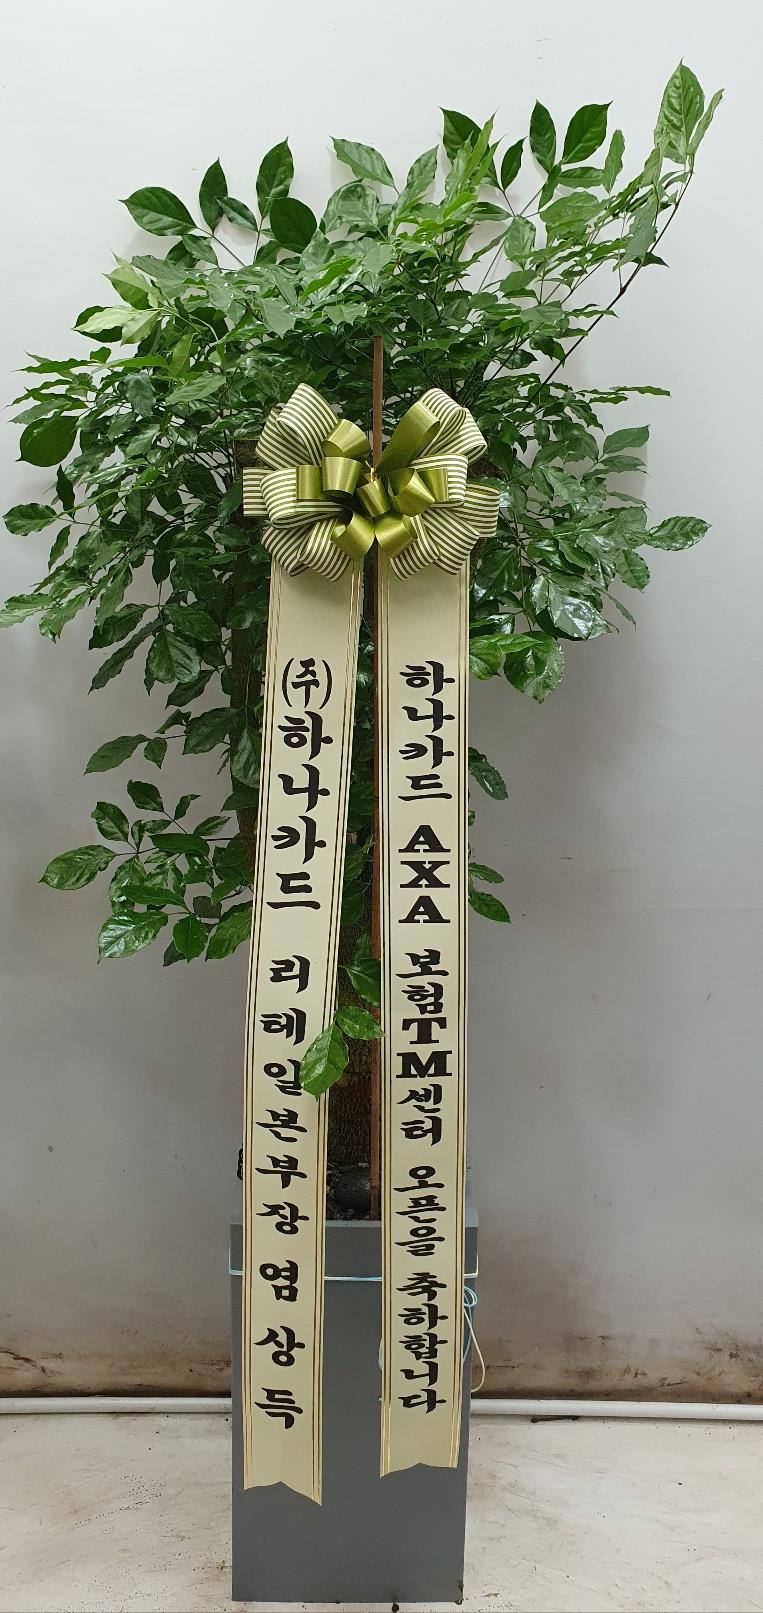 (주)하나카드 리테일본부장 염상득
하나카드 AXA 보험TM센터 오픈을 축하합니다